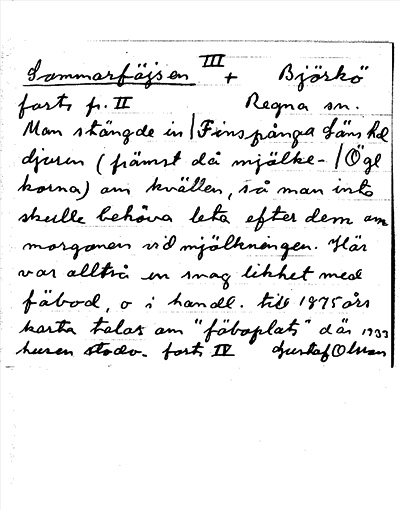 Sommarfäjsen III + Björkö
forts fr. II Regna sn.
Man stängde in | Finspånga Läns hd
djuren (främst då mjölk- | Ögl
korna) om kvällen, så man inte
skulle behöva leta efter dem om
morgonen vid mjölkningen. Här
var alltså en svag likhet med
fäbod, o i handl. till 1875 års
karta talas om "fäboplats" där 1933
husen stodo. forts IV Gustaf Olsson